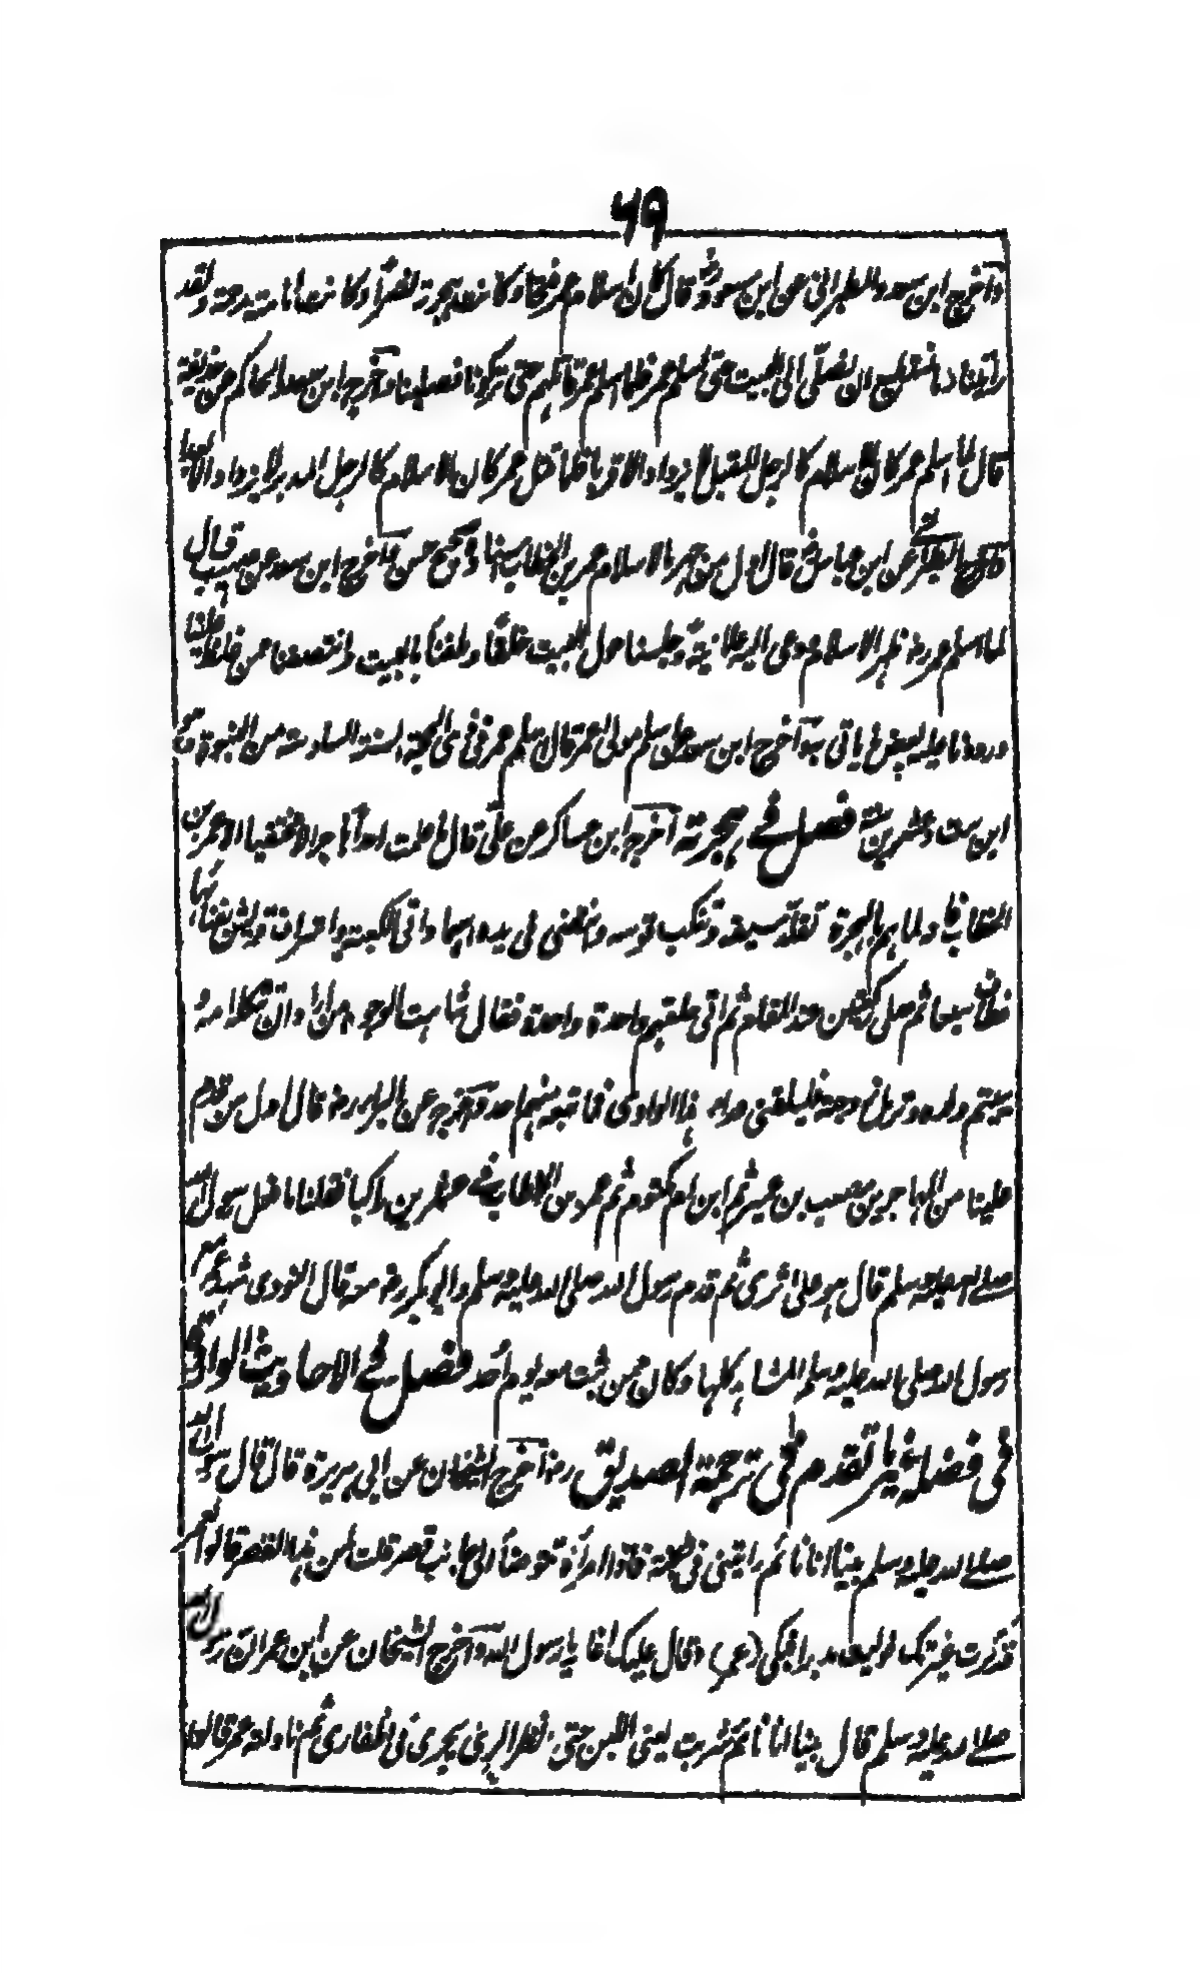 ٦٩
وأخرج ابن سعد والطبرانى عن ابن مسعود قال كان اسلام عمر فتحا وكانت هجرته نصرا وكانت امامته رحمة ولقد
رأيتنا وما نستطيع ان نصلى الى البيت حتى اسلم عمر فلما اسلم عمر قاتلهم حتى تركونا فصلينا وأخرج ابن سعد والحاكم عن حذيفة
قال لما اسلم عمر كان الاسلام كالرجل المقبل لا يزداد الا قربا فلما قتل عمر كان الاسلام كالرجل المدبر لا يزداد الا بعدا
وأخرج الطبرانى عن ابن عباس قال اول من جهر بالاسلام عمر بن الخطاب اسناده صحيح حسن وأخرج ابن سعد عن صهيب قال
لما اسلم عمر رض ظهر الاسلام ودعى اليه علانية وجلسنا حول البيت حلقا وطفنا بالبيت وانتصفنا ممن غلظ علينا
ورددنا عليه بعض ما ياتى به وأخرج ابن سعد عن اسلم مولى عمر قال اسلم عمر فى ذى الحجة السنة السادسة من النبوة وهو
ابن ست وعشرين سنة فصل فے هجرته أخرج ابن عساكر عن على قال ما علمت احدا هاجر الا مختفيا الا عمر بن
الخطاب فانه لما هم بالهجرة تقلد سيفه وتنكب قوسه وانتضى فى يده اسهما واتى الكعبة واشراف قريش بفنائها
فطاف سبعا ثم صلى ركعتين عند المقام ثم اتى حلقهم واحدة واحدة فقال شاهت الوجوه من اراد ان تثكله امه و
ييتم ولده وترمل زوجته فليلقنى وراء هذا الوادى فما تبعه منهم احد وأخرج عن البراء رض قال اول من قدم
علينا من المهاجرين مصعب بن عمير ثم ابن ام مكتوم ثم عمر بن الخطاب فے عشرين راكبا فقلنا ما فعل رسول الله
صلے الله عليه وسلم قال هو على اثرى ثم قدم رسول الله صلى الله عليه وسلم وابو بكر رض معه قال النووى شهد عمر مع
رسول الله صلى الله عليه وسلم المشاهد كلها وكان ممن ثبت معه يوم احد فصل فے الاحاديث الواردة
فى فضله غير ما تقدم فى ترجمة الصديق رض أخرج الشيخان عن ابى هريرة قال قال رسول الله
صلے الله عليه وسلم بينا انا نائم رأيتنى فى الجنة فاذا امرأة تتوضأ الى جانب قصر قلت لمن هذا القصر قالوا لعمر
فذكرت غيرتك فوليت مدبرا فبكى (عمر) وقال عليك اغار يا رسول الله وأخرج الشيخان عن ابن عمر ان رسول الله
صلے الله عليه وسلم قال بينا انا نائم شربت يعنى اللبن حتى انظر الرى يجرى فى اظفارى ثم ناولته عمر قالوا